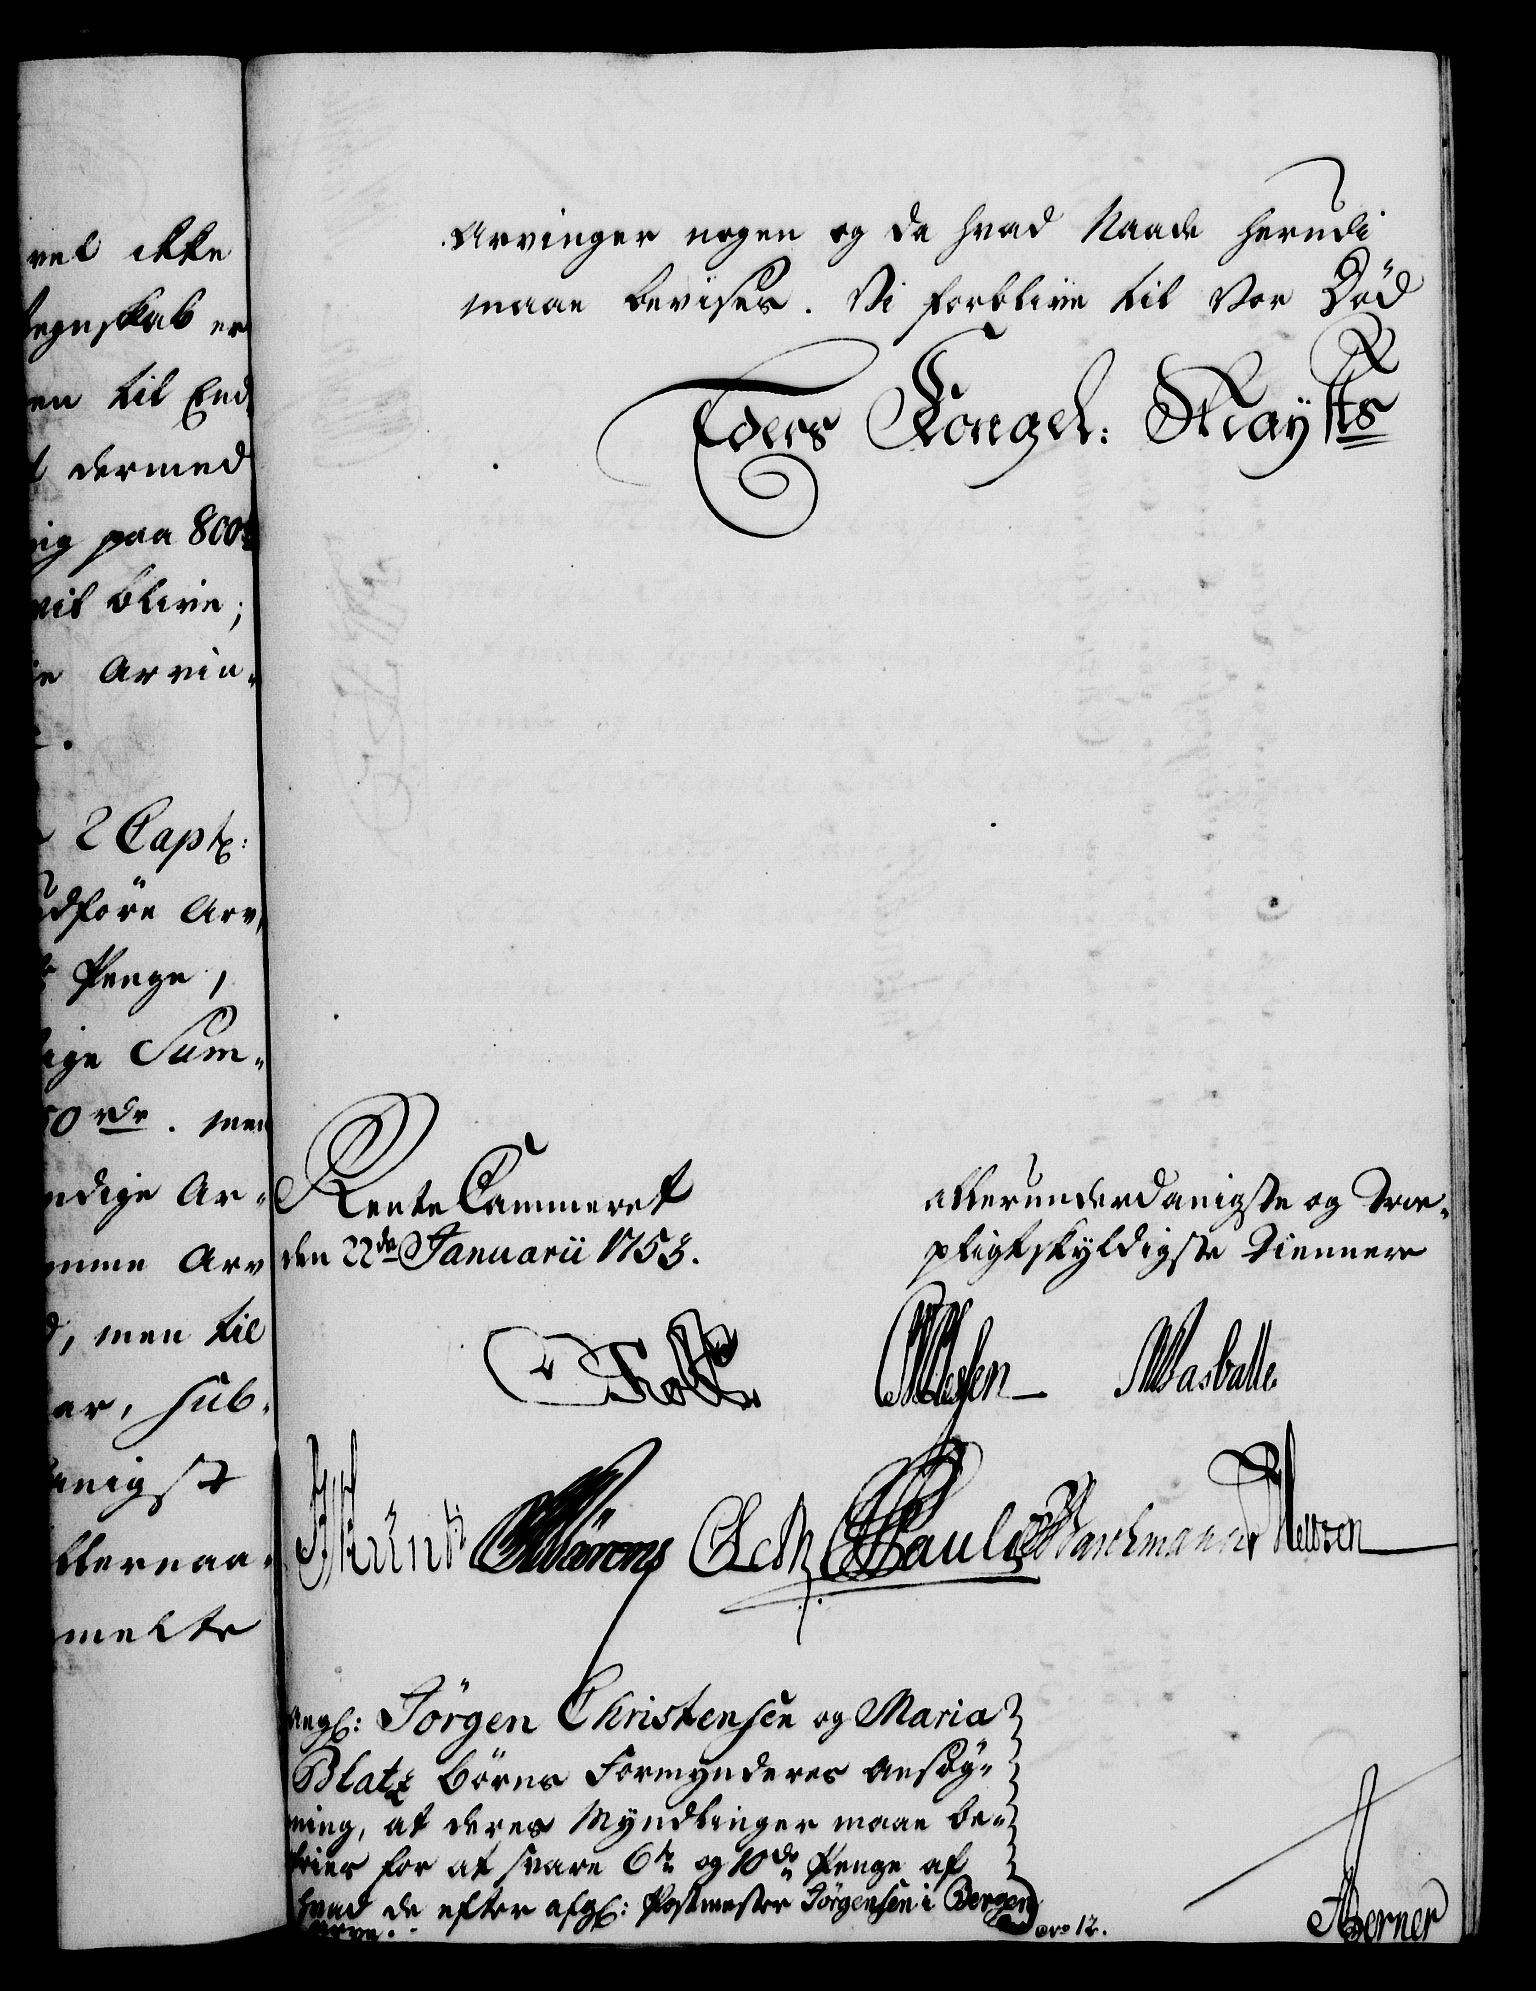 vel ikke
egnskab er
en til End,
dermed
ig paa 800
vil blive;
Arvin-
2 Capt:
udföre Arv,
Penge,
ige Sum-
50 rdr. men
ndige Ar-
mme Arv
, men til
ar, sub-
anigst
allernaa-
melte
Arvinger nogen og da hvad Naade herudi
maae bevises. Vi forblive til Vor Död
Eders Kongel: Maytts
Rente Cammeret
den 22de Januarii 1753.
allerunderdanigste og Troe-
pligtskyldigste Tiennere
Holst
Wasballe
Wärens Paulsen
angl: Jörgen Christensen og Maria
Blatz Börns Formynderes Ansög-
ning, at deres Myndlinger maae be-
fries for at svare 6te og 10de Penge af
hvad de efter afgl: Postmester Jörgensen i Bergen
arve.
No 12.